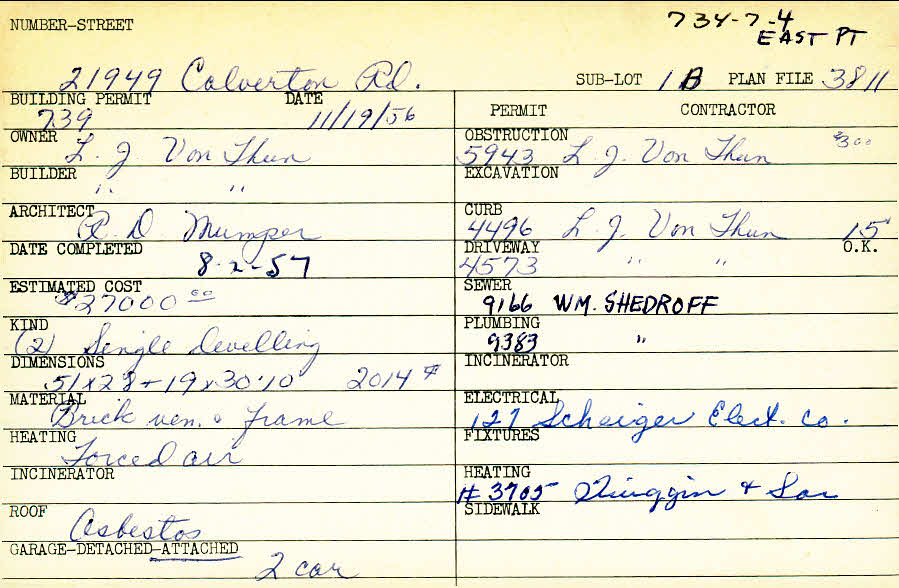 734-7-4
EAST PT
NUMBER-STREET
21949 Calverton Rd. SUB-LOT 1B PLAN FILE 3811
BUILDING PERMIT DATE
739 11/19/56
OWNER
L. J. Von Thun
BUILDER
" "
ARCHITECT
R. D. Mumper
DATE COMPLETED
8-2-57
ESTIMATED COST
$27000 00
KIND
(2) Single Dwelling
DIMENSIONS
51x28+19x30'10 2014 #
MATERIAL
Brick ven. & frame
HEATING
Forced air
INCINERATOR
ROOF
Asbestos
GARAGE-DETACHED-ATTACHED
2 car
PERMIT CONTRACTOR
OBSTRUCTION
5943 L. J. Von Thun $300
EXCAVATION
CURB
4496 L. J. Von Thun 15'
DRIVEWAY O.K.
4573 " "
SEWER
9166 WM. SHEDROFF
PLUMBING
9383 "
INCINERATOR
ELECTRICAL
127 Elect. Co.
FIXTURES
HEATING
# 3705 & Son
SIDEWALK